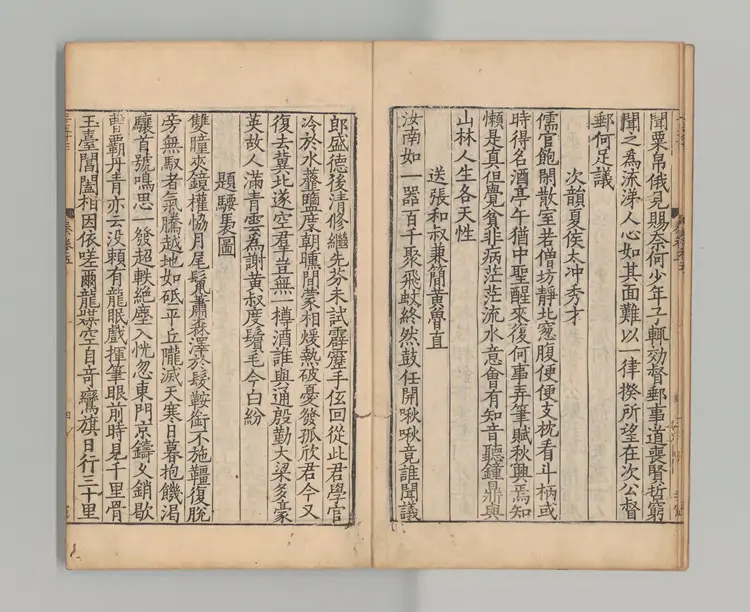 聞粟帛俄見賜奈何少年子輒効督郵事道喪賢哲窮
聞之為流涕人心如其面難以一律揆所望在次公督
郵何足議
次韻夏侯太冲秀才
儒官飽閑散室若僧坊靜北窻腹便便支枕看斗柄或
時得名酒亭午猶中聖醒來復何事弄筆賦秋興焉知
懶是真但覺貧非病茫茫流水意會有知音聽鐘鼎與
山林人生各天性
送張和叔兼簡黃魯直
汝南如一器百千聚飛蚊終然鼓狂鬧啾啾竟誰聞議
郎盛德後清修繼先芬未試霹靂手低回從此君學官
冷於水虀鹽度朝曛間蒙相煖熱破憂發孤欣君今又
復去冀北遂空羣豈無一樽酒誰與通殷勤大梁多豪
英故人滿青雲為謝黃叔度鬢毛今白紛
題騕褭圖
雙瞳夾鏡權協月尾鬣蕭森澤於髮鞍銜不施韁復脫
旁無馭者氣騰越地如砥平丘隴滅天寒日暮抱饑渴
驤首號鳴思一發超軼絕塵入恍忽東門京鑄久銷歇
曹霸丹青亦云沒賴有龍眠戲揮筆眼前時見千里骨
玉臺閶闔相因依嗟爾龍媒空自奇鸞旗日行三十里